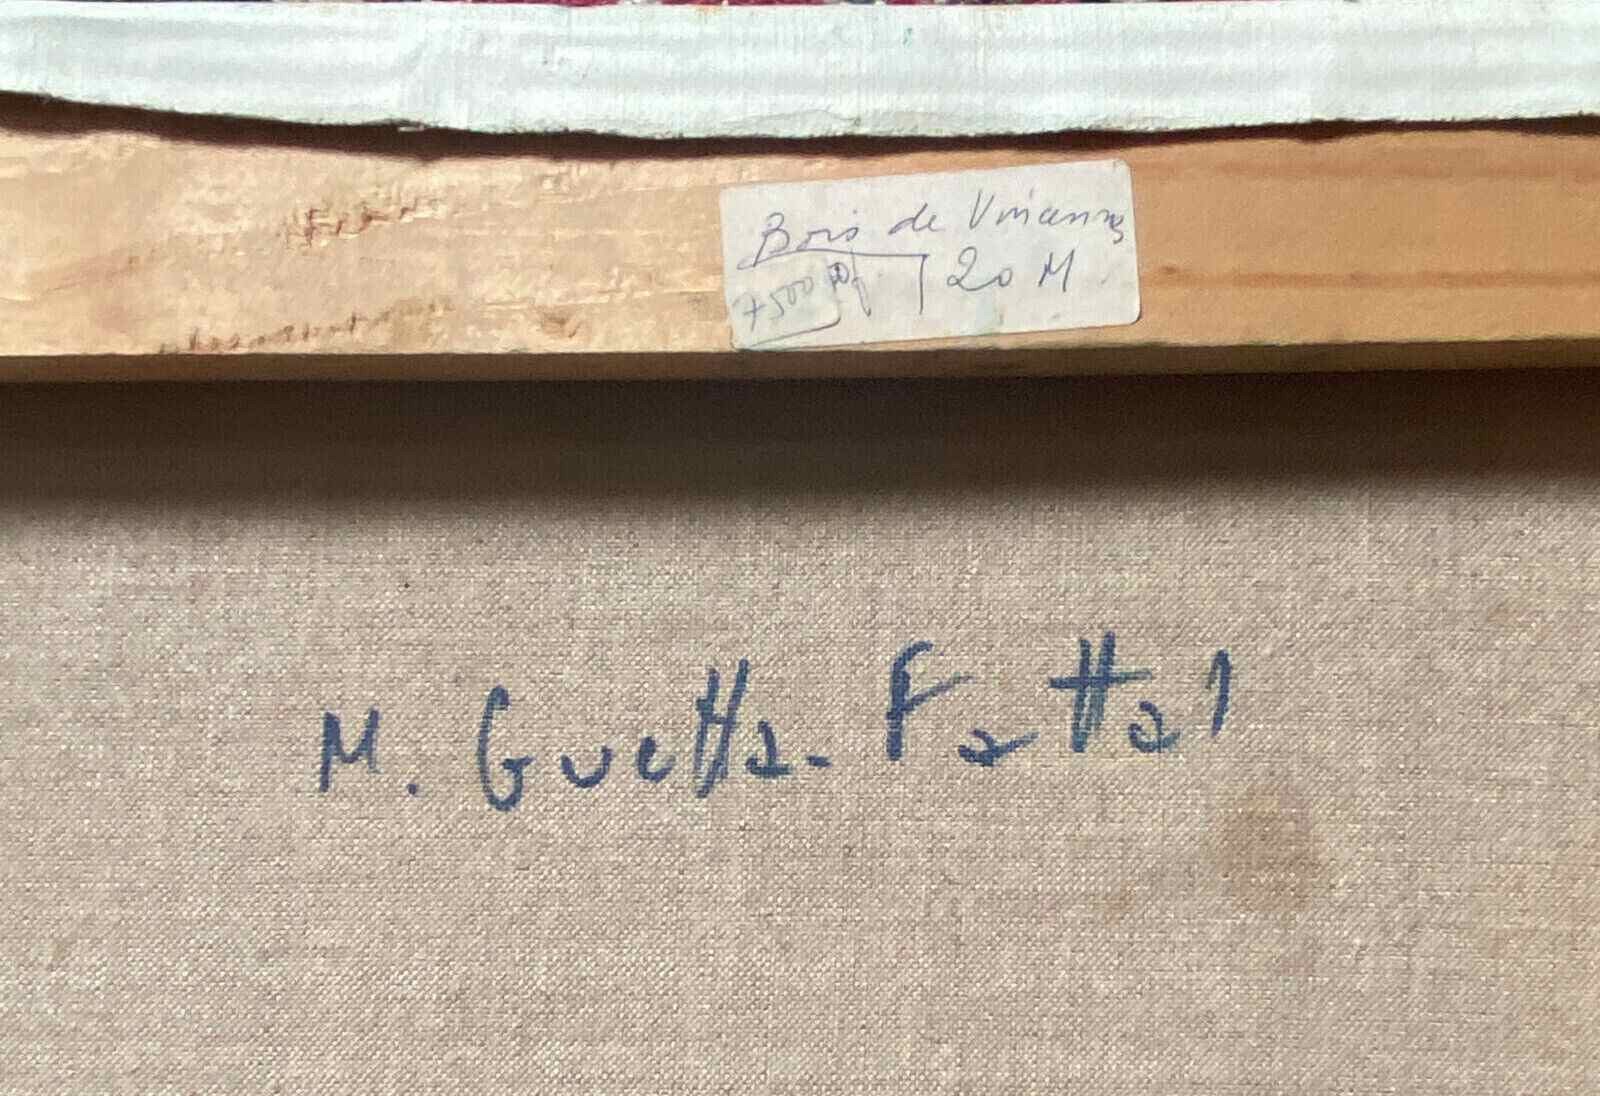 Bois de Vincennes
7500 20 M
M. Guetta-Fattal